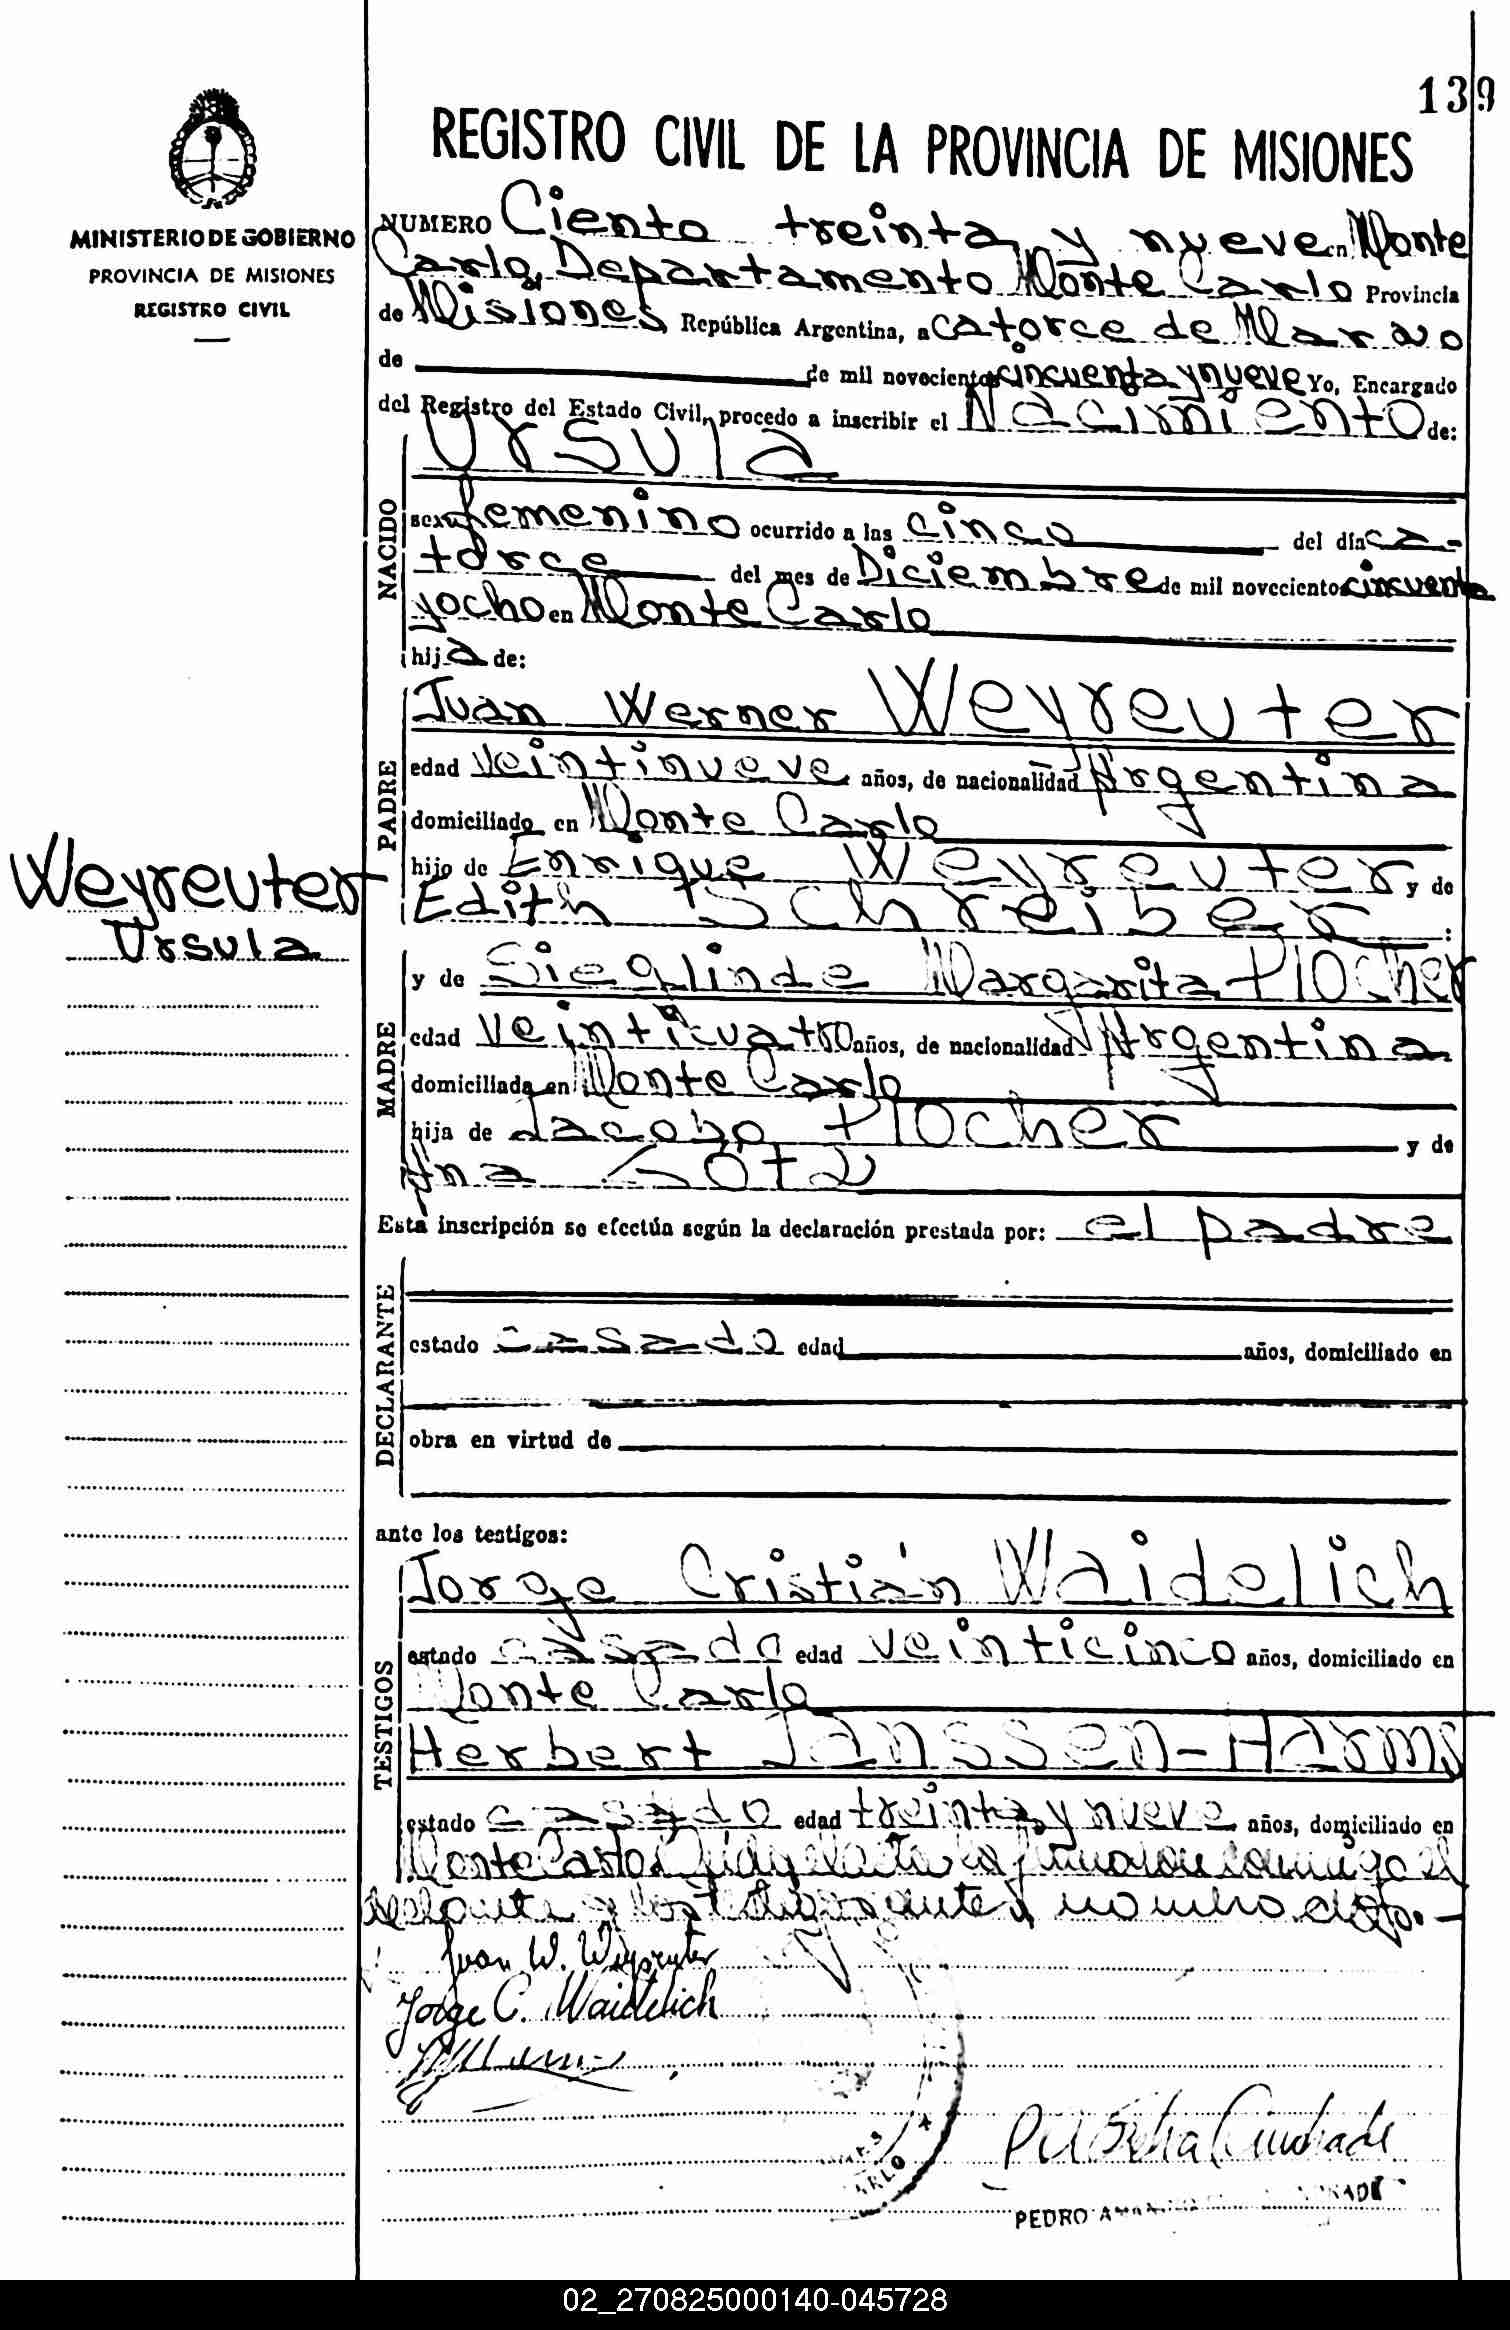 139
REGISTRO CIVIL DE LA PROVINCIA DE MISIONES
MINISTERIO DE GOBIERNO
PROVINCIA DE MISIONES
REGISTRO CIVIL
NUMERO Ciento treinta y nueve en Monte
Carlo, Departamento Monte Carlo Provincia
de Misiones, República Argentina, a catorce de Marzo
de de mil novecientos cincuenta y nueve Yo, Encargado
del Registro del Estado Civil, procedo a inscribir el Nacimiento de:
Ursula
NACIDO
sexo femenino ocurrido a las cinco del día ca-
torce del mes de Diciembre de mil novecientos cincuenta
y ocho en Monte Carlo
hija de:
Juan Werner Weyreuter
PADRE
edad veintinueve años, de nacionalidad Argentina
domiciliado en Monte Carlo
hijo de Enrique Weyreuter y de
Edith Schreiber :
Weyreuter
Ursula
y de Sieglinde Margarita Plocher
MADRE
edad veinticuatro años, de nacionalidad Argentina
domiciliada en Monte Carlo
hija de Jacobo Plocher y de
Ana Götz
Esta inscripción se efectúa según la declaración prestada por: el padre
DECLARANTE
estado casado edad años, domiciliado en
obra en virtud de
ante los testigos:
Jorge Cristián Waidelich
TESTIGOS
estado casado edad veinticinco años, domiciliado en
Monte Carlo
Herbert Janssen-Harms
estado casado edad treinta y nueve años, domiciliado en
Monte Carlo. Leída el acta la firmaron conmigo el
y los testigos antes
Juan W. Weyreuter
Jorge C. Waidelich
CARLO
PEDRO
02_270825000140-045728